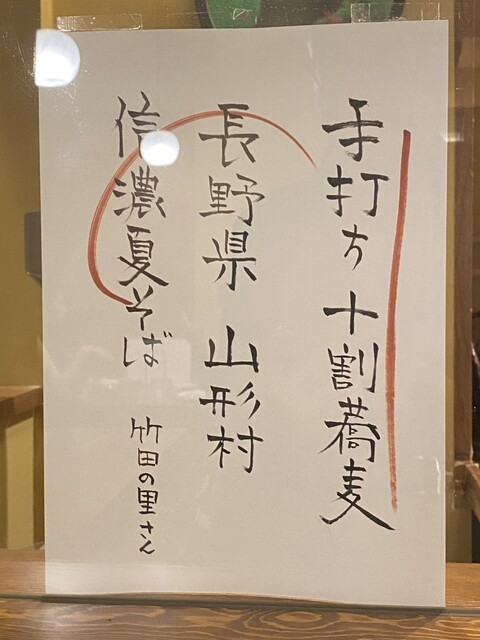 手打ち十割蕎麦
長野県 山形村
信濃夏そば 竹田の里さん